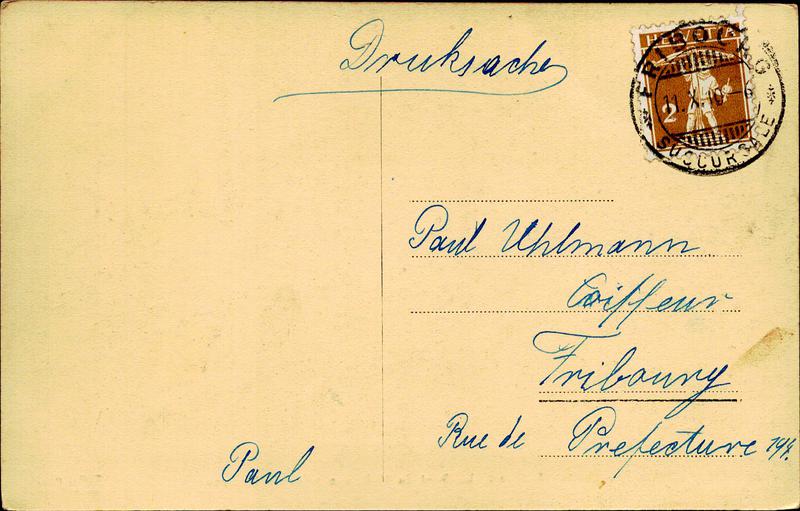 Drucksache
HELVETIA
2
FRIBOURG
11.X.10-6
SUCCURSALE
Paul Uhlmann
Coiffeur
Fribourg
Rue de Prefecture 194.
Paul